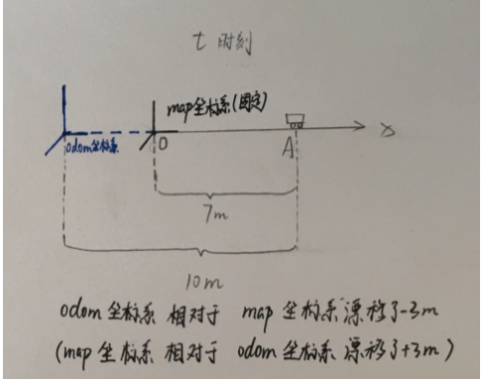 t 时刻
map坐标系(固定)
odom坐标系
O
A
x
7m
10m
odom 坐标系 相对于 map 坐标系漂移了-3m
(map 坐标系 相对于 odom坐标系 漂移了+3m)